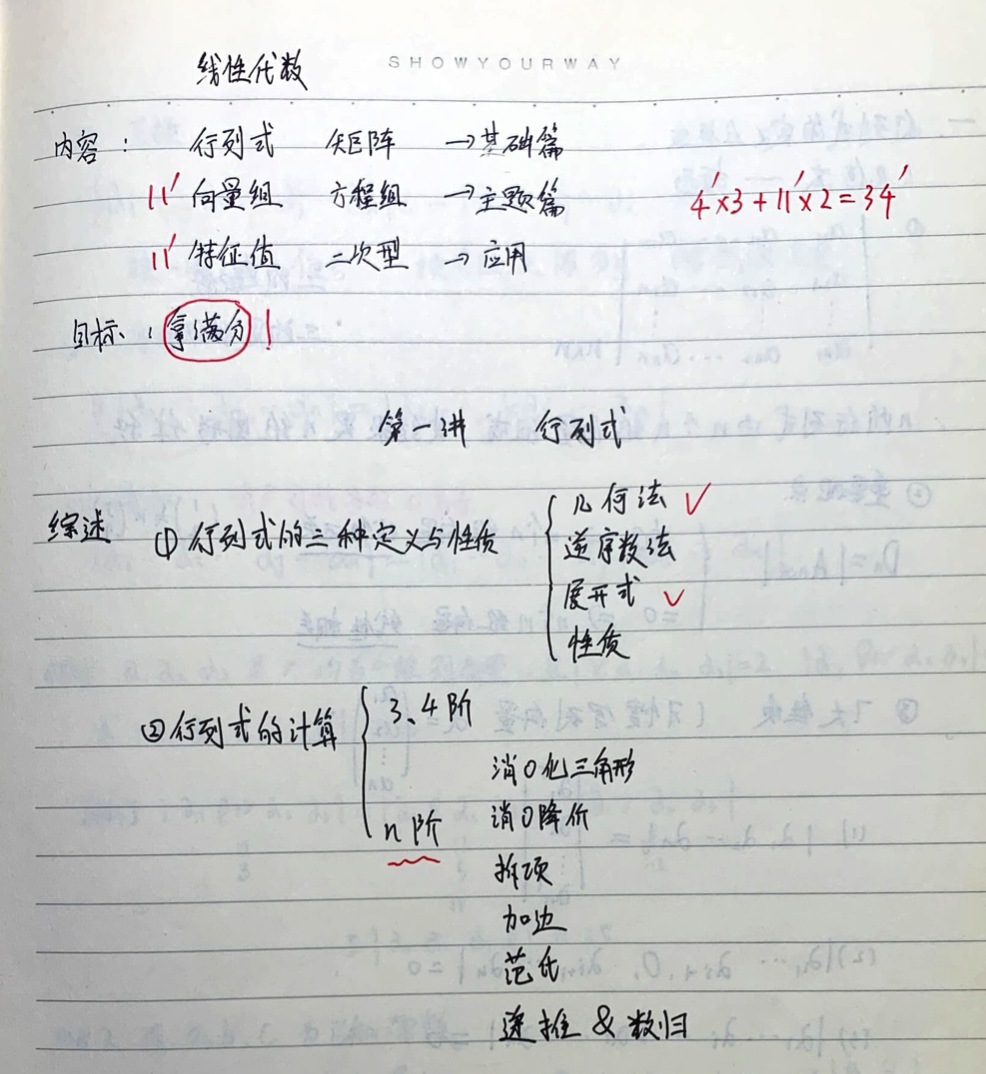 SHOWYOURWAY
线性代数
内容： 行列式 矩阵 →基础篇
11′ 向量组 方程组 →主题篇 4′×3+11′×2=34′
11′ 特征值 二次型 → 应用
目标：拿满分！
第一讲 行列式
综述 ① 行列式的三种定义与性质
几何法 ✓
逆序数法
展开式 ✓
性质
②行列式的计算
3、4阶
n阶
消0化三角形
消0降价
拆项
加边
范氏
递推 & 数归